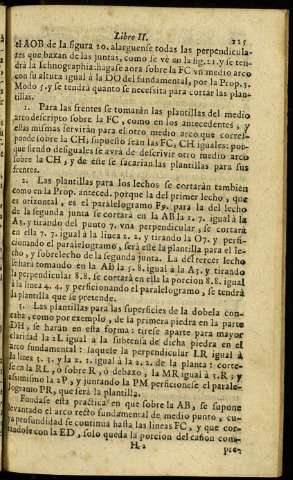 Libro II. 115
el AOB de la figura 20. alarguense todas las perpendicula-
res que baxan de las juntas, como se vè en la fig. 21. y se ten-
drà la Ichnographia: hagase aora sobre la FC un medio arco
con su altura igual à la DO del fundamental, por la Prop. 3.
Modo 5. y se tendrà quanto se necessita para cortar las plan-
tillas.
1. Para las frentes se tomaràn las plantillas del medio
arco descripto sobre la FC, como en los antecedentes, y
estas mismas serviràn para el otro medio arco que corres-
ponde sobre la CH; supuesto sean las FC, CH iguales: por-
que siendo desiguales se avrà de descrivir otro medio arco
sobre la CH, y de este se sacaràn las plantillas para sus
frentes.
2. Las plantillas para los lechos se cortaràn tambien
como en la Prop. anteced. porque la del primer lecho, que
es orizontal, es el paralelogramo F9. para la del lecho
de la segunda junta se cortarà en la AB la 2. 7. igual à la
A5. y tirando del punto 7. una perpendicular, se cortarà
en ella 7. 7. igual à la linea 2. 2, y tirando la O7. y perfi-
cionando el paralelogramo, serà este la plantilla para el le-
cho, y sobrelecho de la segunda junta. La del tercer lecho
se harà tomando en la AB la 5. 8. igual à la A5. y tirando
la perpendicular 8.8. se cortarà en ella la porcion 8.8. igual
à la linea 4. 4. y perficionando el paralelogramo, se tendrà
la plantilla que se pretende.
3. Las plantillas para las superficies de la dobela con-
caba, como por exemplo, de la primera piedra en la parte
DH, se haràn en esta forma: tirese aparte para mayor
claridad la 2L igual à la subtensa de dicha piedra en el
arco fundamental: saquese la perpendicular LR igual à
la linea 3. 3. y la 2. 2. igual à la 2. 2. de la planta: corte-
se en la RL, ò sobre R, ò debaxo; la MR igual à 3.R; y
assimismo la 2P, y juntando la PM perficionese el parale-
logramo PR, que serà la plantilla.
Fundase esta practica en que sobre la AB, se supone
levantado el arco recto fundamental de medio punto, cu-
ya profundidad se continua hasta las lineas FC, y que cor-
tandole con la ED, solo queda la porcion del cañon com-
H 2